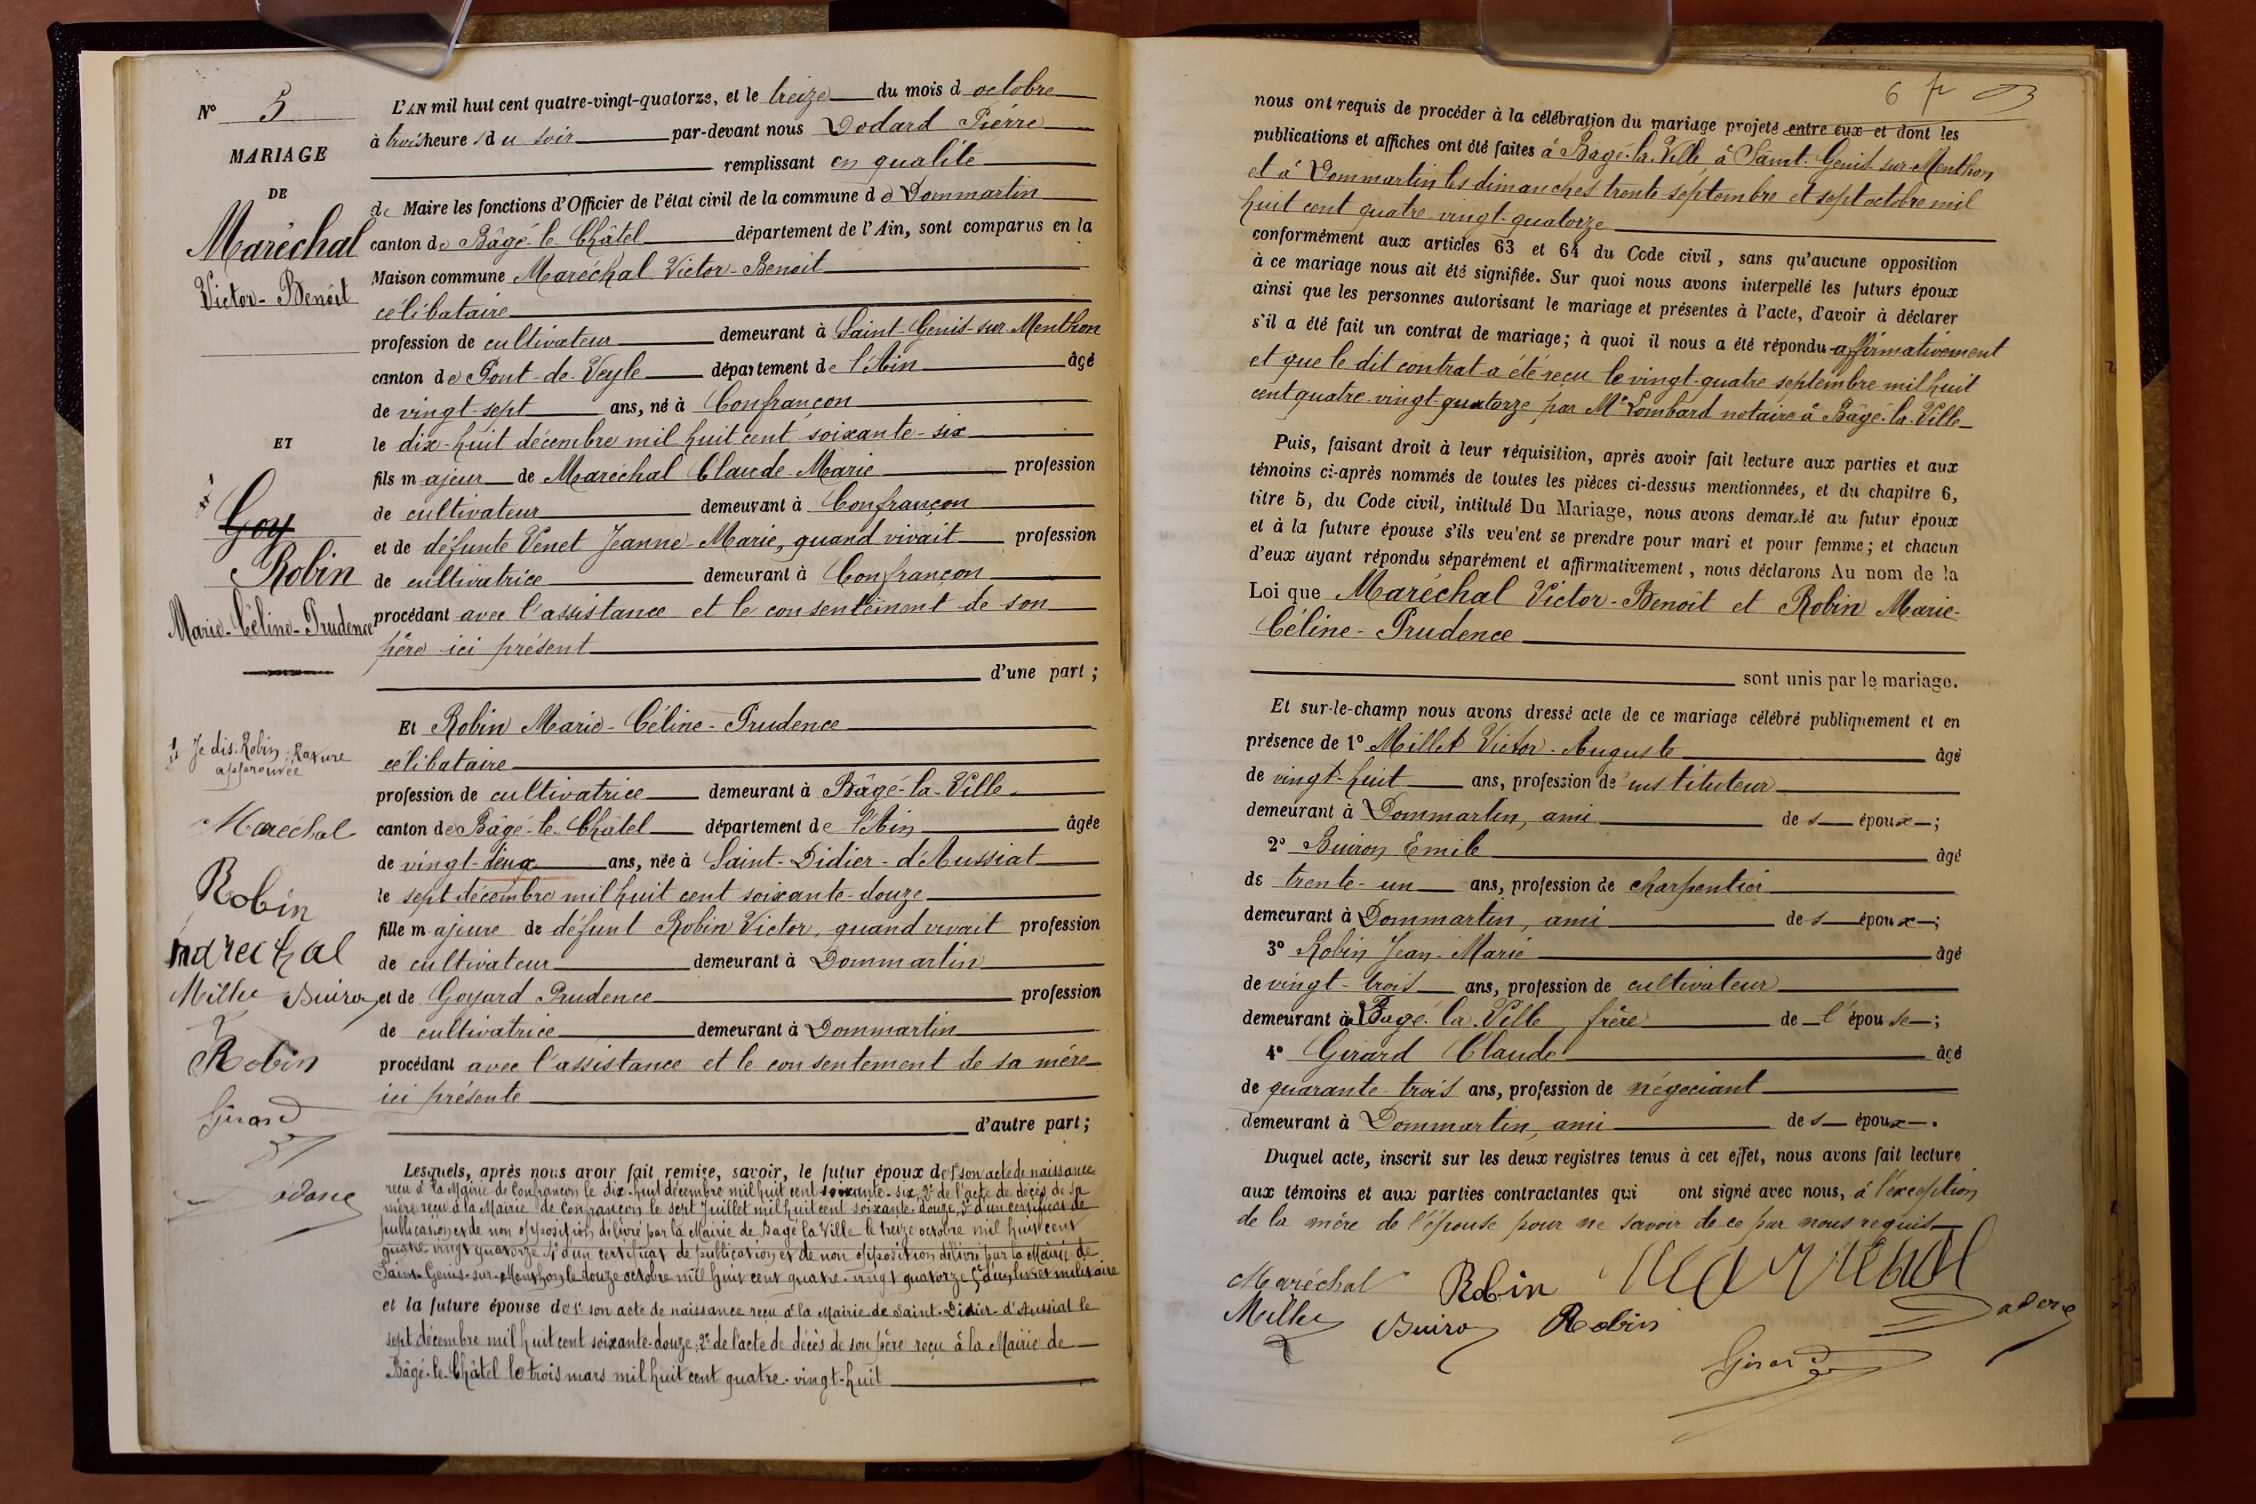 N° 5
MARIAGE
DE
Maréchal
Victor-Benoît
ET
Goy
Robin
Marie-Céline-Prudence
Je dis Robin. Rature
approuvée
Maréchal
Robin
marechal
Buiron
Robin
Girard
L'AN mil huit cent quatre-vingt-quatorze, et le treize du mois d octobre
à trois heures du soir par-devant nous Dodard Pierre
remplissant en qualité
de Maire les fonctions d'Officier de l'état civil de la commune de Dommartin
canton de Bâgé-le-Châtel département de l'Ain, sont comparus en la
Maison commune Maréchal Victor-Benoit
célibataire
profession de cultivateur demeurant à Saint-Genis-sur-Menthon
canton de Pont-de-Veyle département de l'Ain âgé
de vingt-sept ans, né à Confrançon
le dix-huit décembre mil huit cent soixante-six
fils majeur de Maréchal Claude-Marie profession
de cultivateur demeurant à Confrançon
et de défunte Venet Jeanne-Marie, quand vivait profession
de cultivatrice demeurant à Confrançon
procédant avec l'assistance et le consentement de son
père ici présent
d'une part ;
Et Robin Marie-Céline-Prudence
célibataire
profession de cultivatrice demeurant à Bâgé-la-Ville
canton de Bâgé-le-Châtel département de l'Ain âgée
de vingt-deux ans, née à Saint-Didier-d'Aussiat
le sept décembre mil huit cent soixante-douze
fille majeure de défunt Robin Victor, quand vivait profession
de cultivateur demeurant à Dommartin
et de Goyard Prudence profession
de cultivatrice demeurant à Dommartin
procédant avec l'assistance et le consentement de sa mère
ici présente
d'autre part ;
Lesquels, après nous avoir fait remise, savoir, le futur époux de 1° son acte de naissance
reçu à la Mairie de Confrançon le dix-huit décembre mil huit cent soixante-six, 2° de l'acte de décès de sa
mère reçu à la Mairie de Confrançon le sept Juillet mil huit cent soixante-douze, 3° d'un certificat de
publication et de non opposition délivré par la Mairie de Bagé la Ville le treize octobre mil huit cent
quatre-vingt quatorze 4° d'un certificat de publication et de non opposition délivré par la Mairie de
Saint-Genis-sur-Menthon le douze octobre mil huit cent quatre-vingt quatorze 5° d'un livret militaire
et la future épouse de 1° son acte de naissance reçu à la Mairie de Saint-Didier-d'Aussiat le
sept décembre mil huit cent soixante-douze, 2° de l'acte de décès de son père reçu à la Mairie de
Bâgé-le-Châtel le trois mars mil huit cent quatre-vingt-huit
6
nous ont requis de procéder à la célébration du mariage projeté entre eux et dont les
publications et affiches ont été faites à Bâgé-la-Ville à Saint-Genis-sur-Menthon
et à Dommartin les dimanches trente septembre et sept octobre mil
huit cent quatre-vingt-quatorze
conformément aux articles 63 et 64 du Code civil, sans qu'aucune opposition
à ce mariage nous ait été signifiée. Sur quoi nous avons interpellé les futurs époux
ainsi que les personnes autorisant le mariage et présentes à l'acte, d'avoir à déclarer
s'il a été fait un contrat de mariage ; à quoi il nous a été répondu affirmativement
et que le dit contrat a été reçu le vingt-quatre septembre mil huit
cent quatre-vingt-quatorze par Me Lombard notaire à Bâgé-la-Ville
Puis, faisant droit à leur réquisition, après avoir fait lecture aux parties et aux
témoins ci-après nommés de toutes les pièces ci-dessus mentionnées, et du chapitre 6,
titre 5, du Code civil, intitulé Du Mariage, nous avons demandé au futur époux
et à la future épouse s'ils veulent se prendre pour mari et pour femme ; et chacun
d'eux ayant répondu séparément et affirmativement, nous déclarons Au nom de la
Loi que Maréchal Victor-Benoît et Robin Marie-
Céline-Prudence
sont unis par le mariage.
Et sur-le-champ nous avons dressé acte de ce mariage célébré publiquement et en
présence de 1° Millet Victor-Auguste âgé
de vingt-huit ans, profession de instituteur
demeurant à Dommartin, ami des époux ;
2° Buiron Emile âgé
de trente-un ans, profession de charpentier
demeurant à Dommartin, ami des époux ;
3° Robin Jean-Marie âgé
de vingt-trois ans, profession de cultivateur
demeurant à Bagé-la-Ville frère de l'épouse ;
4° Girard Claude âgé
de quarante-trois ans, profession de négociant
demeurant à Dommartin, ami des époux.
Duquel acte, inscrit sur les deux registres tenus à cet effet, nous avons fait lecture
aux témoins et aux parties contractantes qui ont signé avec nous, à l'exception
de la mère de l'épouse pour ne savoir de ce par nous requis
Maréchal Robin Marechal
Buiron Robin
Girard